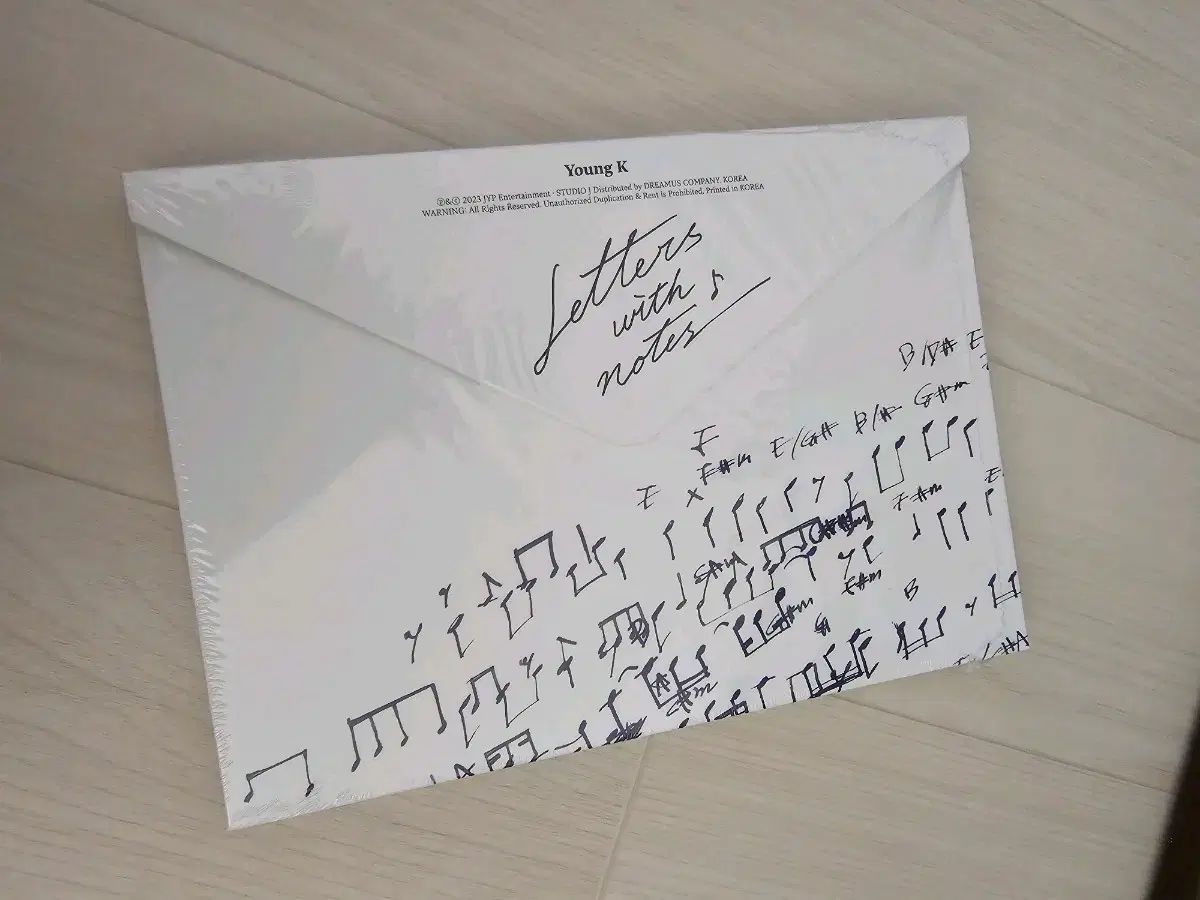 Young K
℗&© 2023 JYP Entertainment · STUDIO J Distributed by DREAMUS COMPANY. KOREA
WARNING: All Rights Reserved. Unauthorized Duplication & Rent is Prohibited. Printed in KOREA
Letters
with
notes
B/D# E
F
F#m E/G# B/A# G#m
E x
F#m E
C#m
G#m E#m B
G
A
C#m